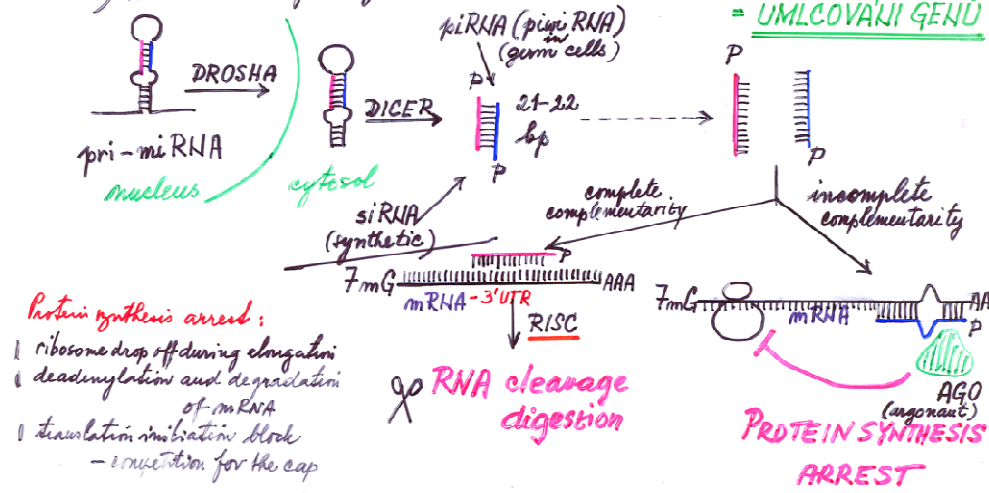 = UMLČOVÁNÍ GENŮ
piRNA (piwi RNA)
in
(germ cells)
DROSHA
DICER
P
21-22
bp
P
P
P
pri-miRNA
nucleus
cytosol
siRNA
(synthetic)
complete
complementarity
incomplete
complementarity
P
7mG
AAA
mRNA-3'UTR
RISC
RNA cleavage
digestion
7mG
mRNA
AA
P
AGO
(argonaut)
PROTEIN SYNTHESIS
ARREST
Protein synthesis arrest:
ribosome drop off during elongation
deadenylation and degradation
of mRNA
translation initiation block
- competition for the cap